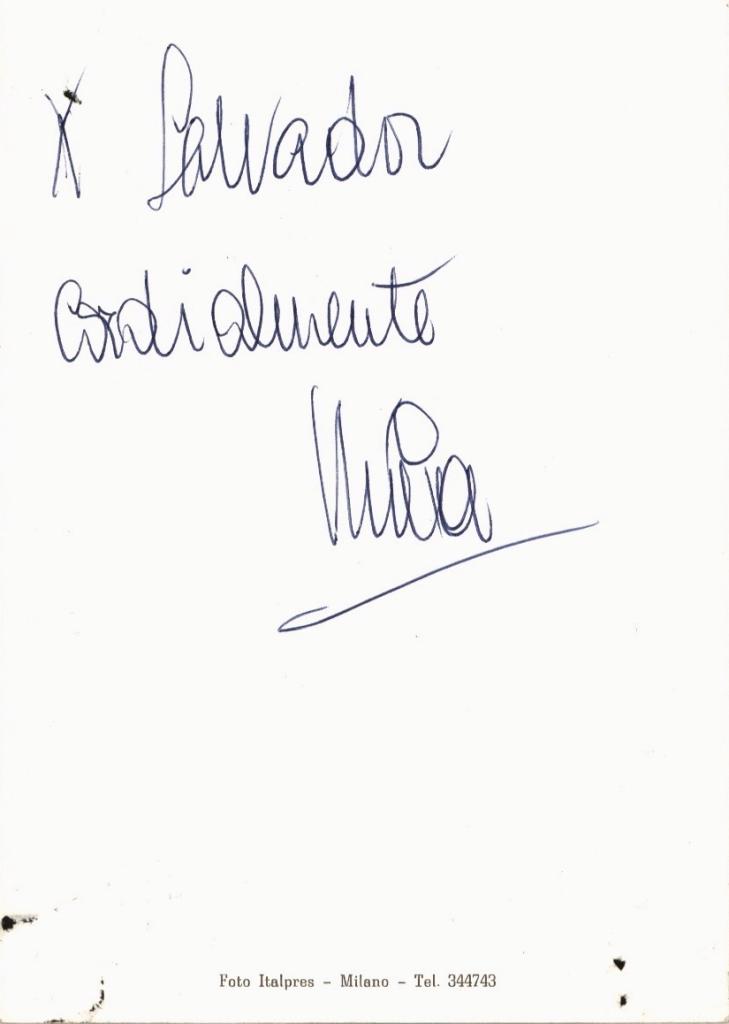 X Salvador
Cordialmente
Foto Italpres - Milano - Tel. 344743